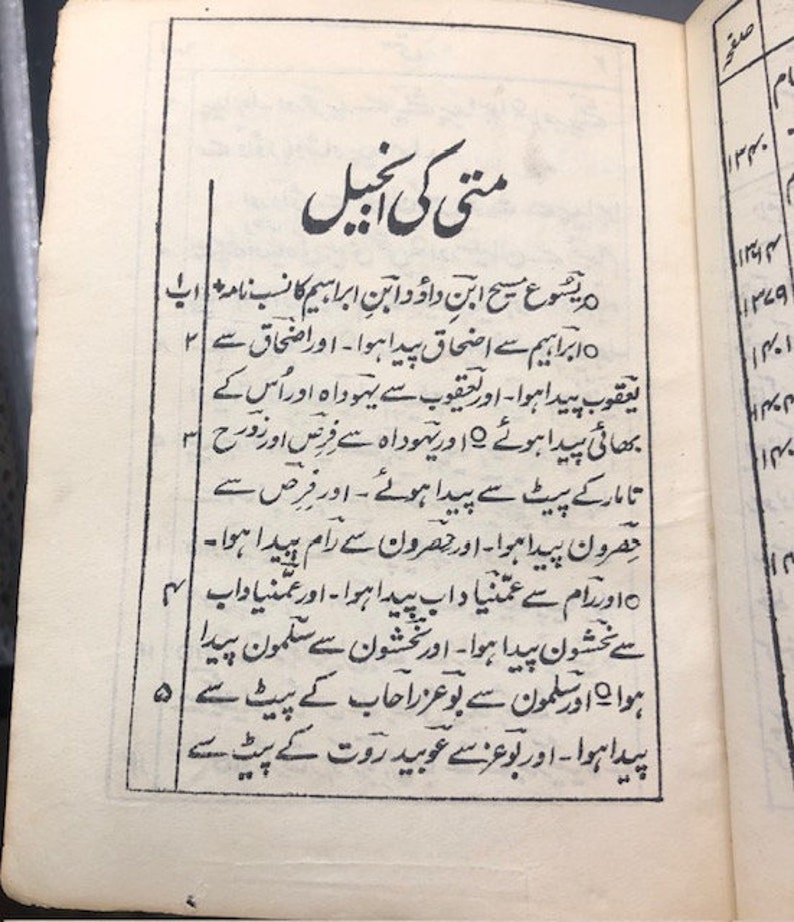 متی کی انجیل
○ یسُوع مسیح ابنِ داؤد ابنِ ابراہیم کا نسب نامہ + ۱ب۱
○ ابراہیم سے اضحاق پیدا ہوا۔ اور اضحاق سے ۲
یعقوب پیدا ہوا۔ اور یعقوب سے یہوداہ اور اُس کے
بھائی پیدا ہوئے ○ اور یہوداہ سے فِرص اور زورح ۳
تامار کے پیٹ سے پیدا ہوئے۔ اور فِرص سے
حِصرون پیدا ہوا۔ اور حِصرون سے رام پیدا ہوا۔
○ اور رام سے عمّنیاداب پیدا ہوا۔ اور عمّنیاداب ۴
سے نخشون پیدا ہوا۔ اور نخشون سے سلمون پیدا
ہوا ○ اور سلمون سے بوعز راحاب کے پیٹ سے ۵
پیدا ہوا۔ اور بوعز سے عوبید روت کے پیٹ سے
صفحہ
۱۳۷۹